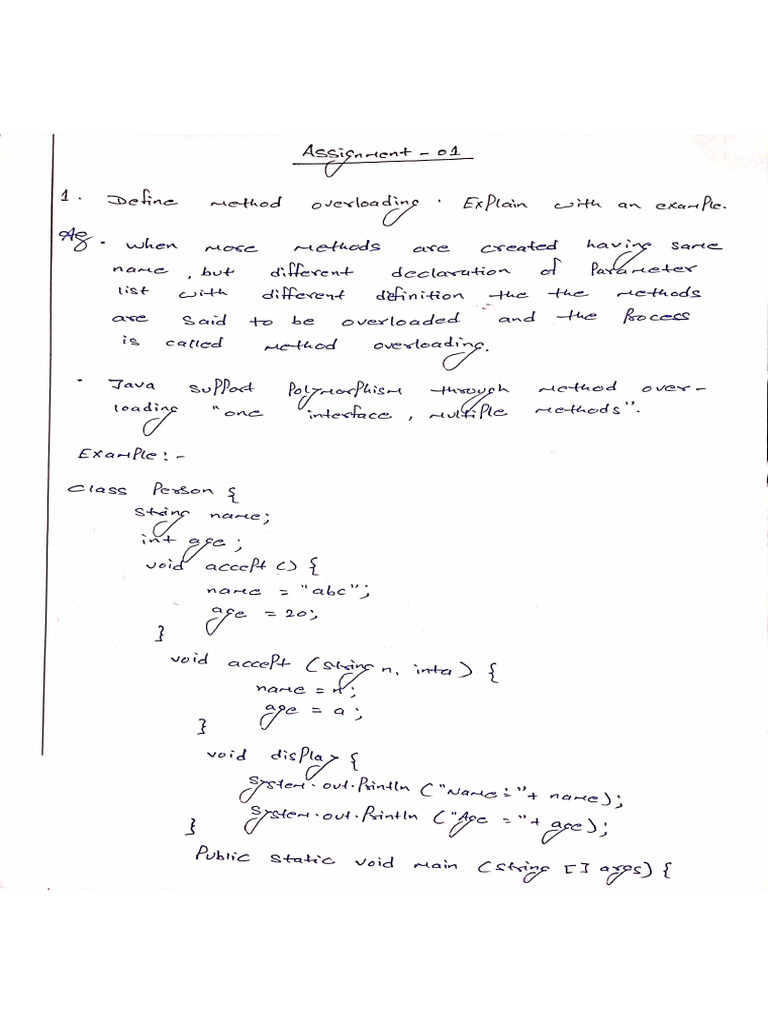 Assignment - 01
1. Define method overloading. Explain with an example.
Ag. When more methods are created having same
name, but different declaration of Parameter
list with different definition the the methods
are said to be overloaded and the Process
is called method overloading.
· Java support Polymorphism through method over-
loading "one interface, multiple methods".
Example:-
Class Person {
String name;
int age;
void accept () {
name = "abc";
age = 20;
}
void accept (string n, int a) {
name = n;
age = a;
}
void display {
System.out.Println ("Name:"+ name);
System.out.Println ("Age ="+ age);
}
Public static void main (string [] args) {